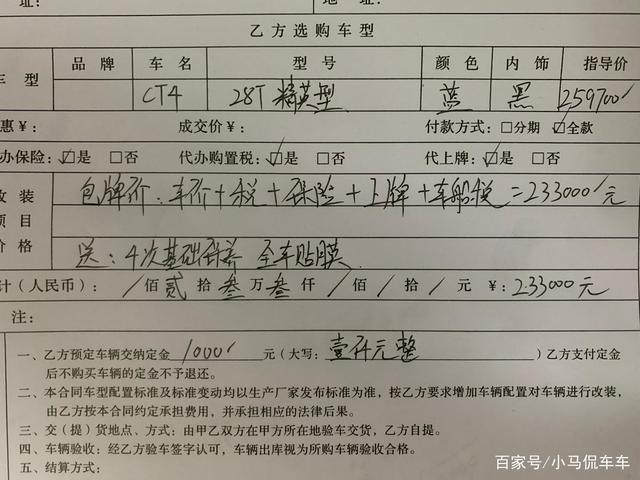 址:
址:
乙方选购车型
车型 品牌 车名 型号 颜色 内饰 指导价
CT4 28T 精英型 蓝 黑 259700
惠￥: 成交价￥: 付款方式:□分期 ☑全款
办保险:☑是 □否 代办购置税:☑是 □否 代上牌:☑是 □否
改装 包牌价:车价+税+保险+上牌+车船税=233000元
项目
价格 送:4次基础保养 全车贴膜
计(人民币): / 佰 贰 拾 叁 万 叁 仟 / 佰 / 拾 / 元 ￥:233000元
注:
一、乙方预定车辆交纳定金 1000 元(大写:壹仟元整 )乙方支付定金
后不购买车辆的定金不予退还。
二、本合同车型配置标准及标准变动均以生产厂家发布标准为准,按乙方要求增加车辆配置对车辆进行改装,
由乙方按本合同约定承担费用,并承担相应的法律后果。
三、交(提)货地点、方式:由甲乙双方在甲方所在地验车交货,乙方自提。
四、车辆验收:经乙方验车签字认可,车辆出库视为所购车辆验收合格。
五、结算方式:
百家号/小马侃车车